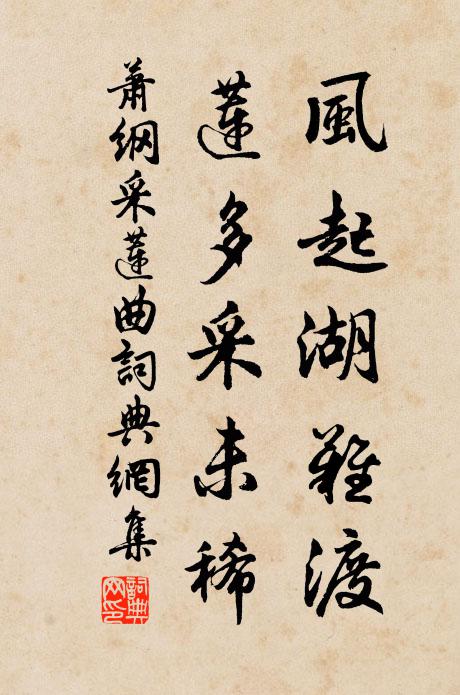 風起湖難渡
蓮多采未稀
蕭綱采蓮曲詞典網集
詞典网印